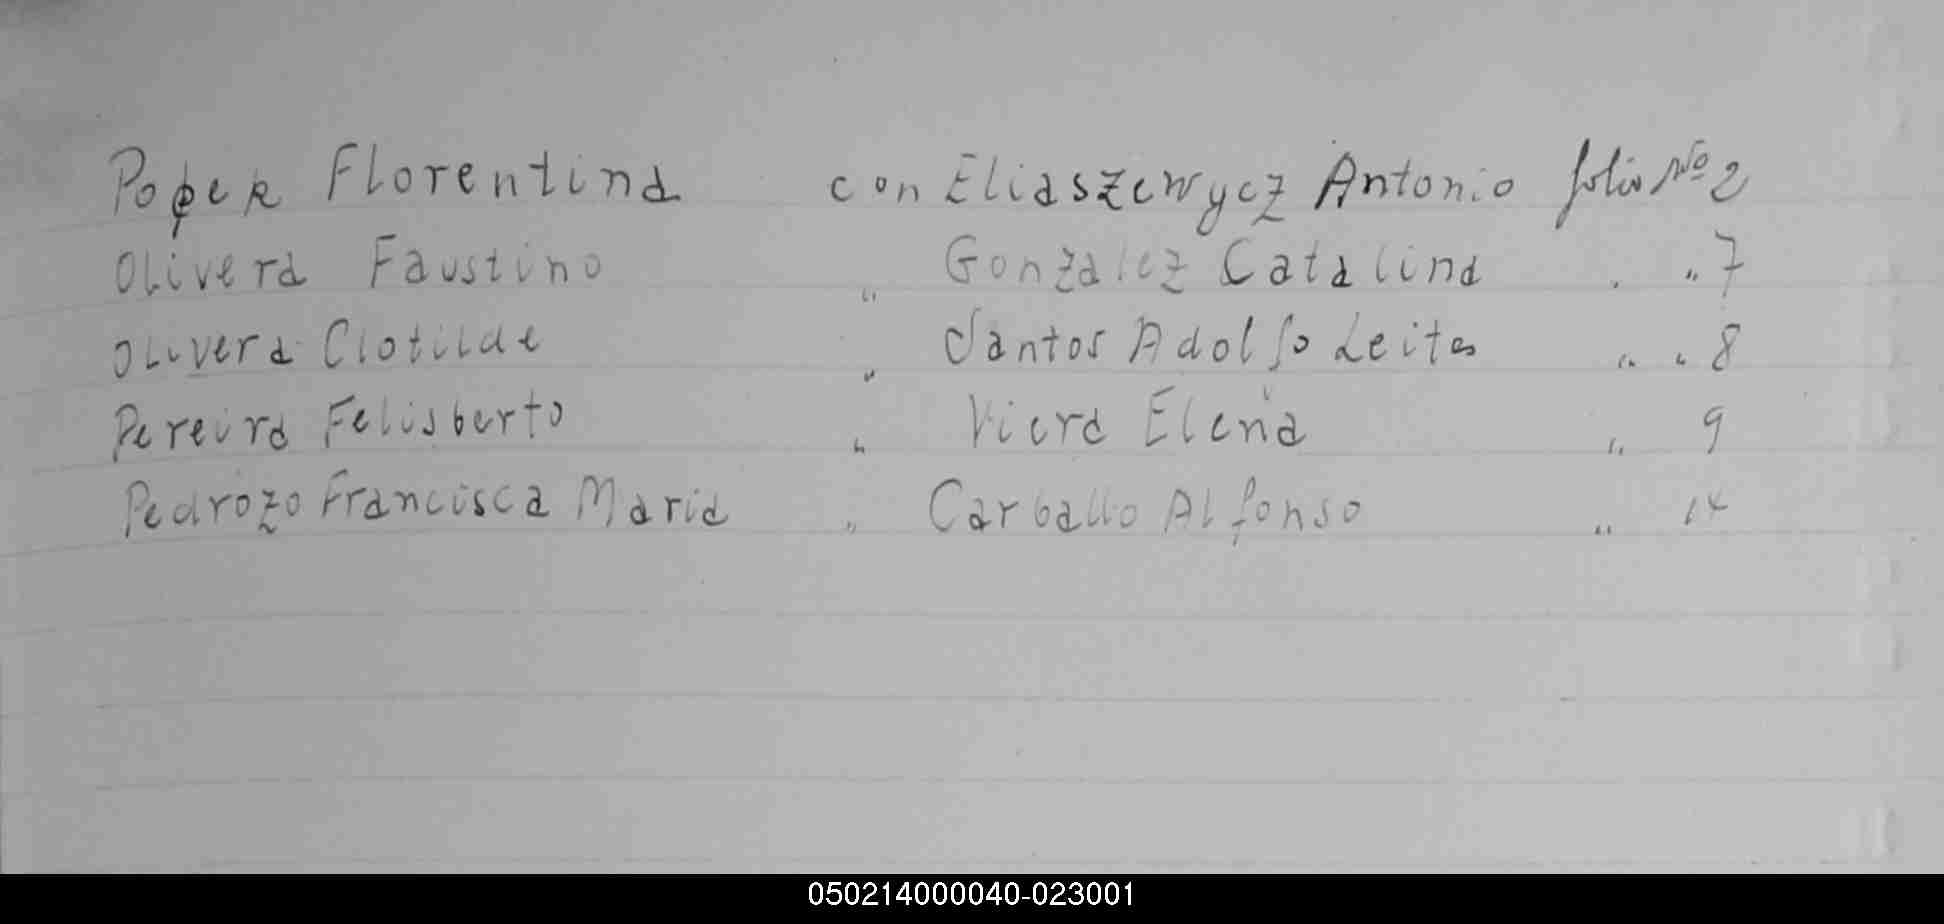 Popek Florentina con Eliaszewycz Antonio folio Nº 2
Olivera Faustino " Gonzalez Catalina " " 7
Olivera Clotilde " Santos Adolfo Leites " " 8
Pereira Felisberto " Viera Elena " 9
Pedrozo Francisca Maria " Carballo Alfonso " 14
050214000040-023001